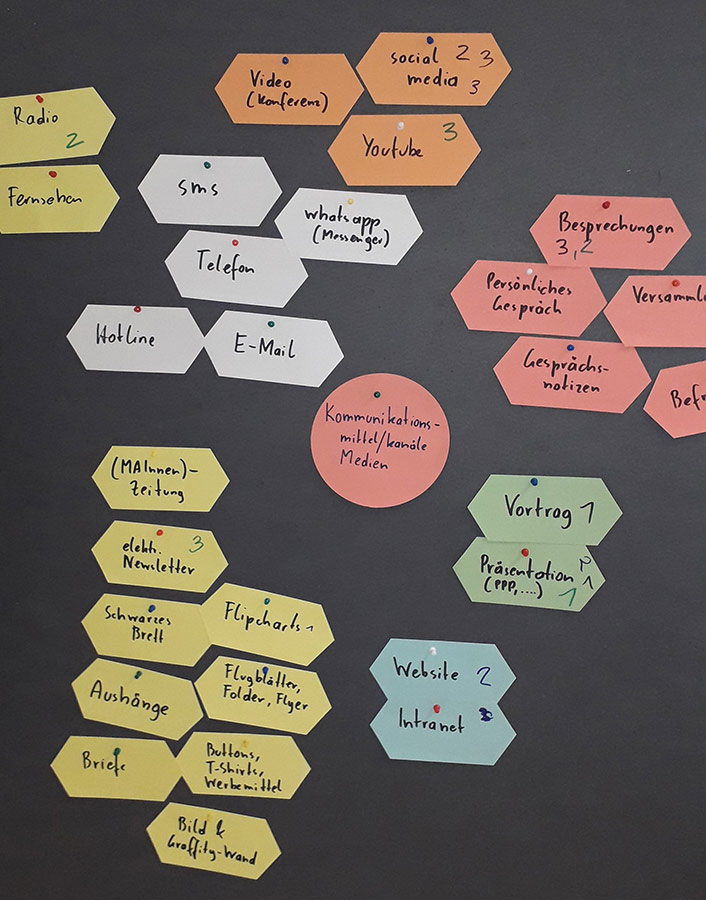 Video
(Konferenz)
social 2 3
media 3
Youtube 3
Radio
2
Fernsehen
sms
whatsapp
(Messenger)
Telefon
Hotline
E-Mail
Besprechungen
3,2
Persönliches
Gespräch
Versammlu
Gesprächs-
notizen
Befr
Kommunikations-
mittel/kanäle
Medien
(MAInnen)-
Zeitung
elektr. 3
Newsletter
Schwarzes
Brett
Flipcharts 1
Aushänge
Flugblätter,
Folder, Flyer
Briefe
Buttons,
T-Shirts,
Werbemittel
Bild &
Graffity-Wand
Vortrag 1
Präsentation 1
(PPP,....) 1
Website 2
Intranet